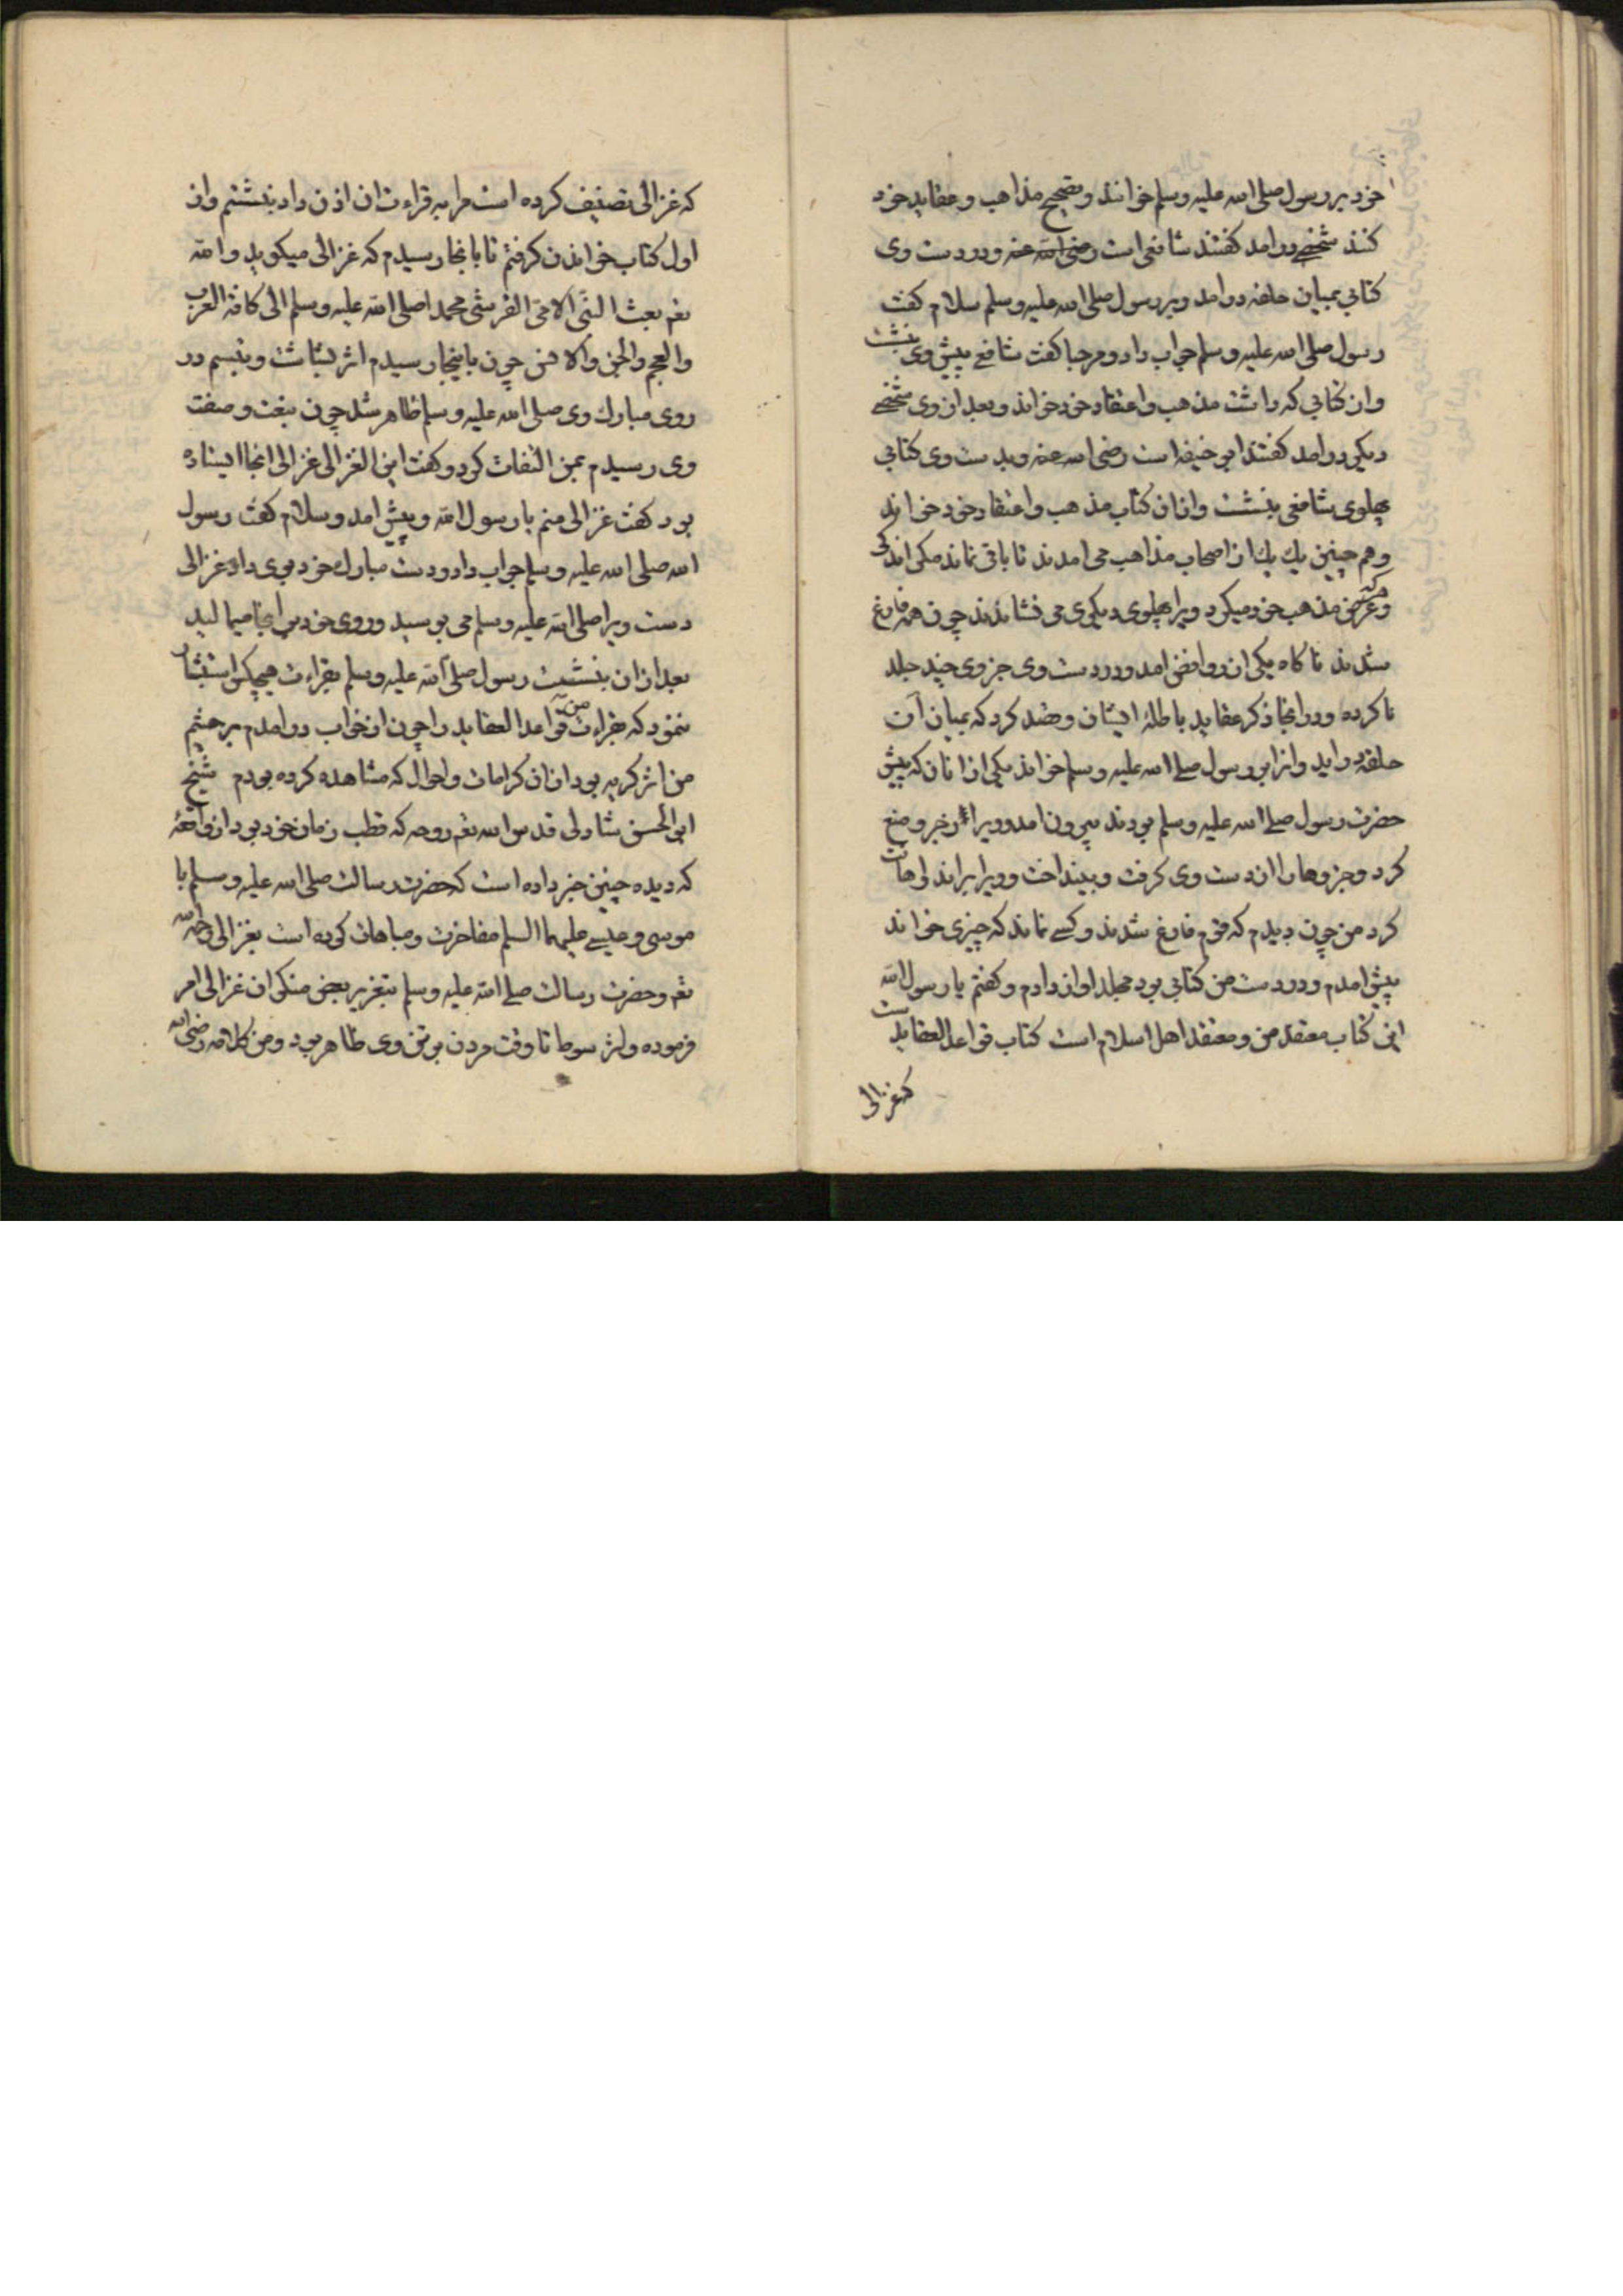 خود بر رسول صلی الله علیه وسلم خوانند و تصحیح مذاهب و عقاید خود
کنند شخصی درامد کفتند شافعی است رضی الله عنه و در دست وی
کتابی بمیان حلقه درامد و بر رسول صلی الله علیه وسلم سلام کفت
رسول صلی الله علیه وسلم جواب داد و مرحبا کفت شافعی پیش وی بنشست
وان کتابی که داشت مذهب و اعتقاد خود خواند و بعد ازوی شخصی
دیکر درامد کفتند ابی حنیفه است رضی الله عنه و بدست وی کتابی
پهلوی شافعی بنشست وازان کتاب مذهب و اعتقاد خود خواند
وهم چنین یك یك از اصحاب مذاهب می امدند تا باقی نماند مکر اندکی
وهر که عرض مذهب خود میکرد ویرا پهلوی دیکری می نشاندند چون همه فارغ
شدند ناکاه یکی از روافض امد و در دست وی جزوی چند جلد
ناکرده و در انجا ذکر عقاید باطلهٔ ایشان و قصد کرد که بمیان آن
حلقه دراید وانرا بر رسول صلی الله علیه وسلم خواند یکی از انان که پیش
حضرت رسول صلی الله علیه وسلم بودند بیرون امد و ویرا زجر و منع
کرد و جزوها را از دست وی کرفت و بینداخت و ویرا براند و اهانت
کرد من چون دیدم که قوم فارغ شدند و کسی نماند که چیزی خواند
پیش امدم و در دست من کتابی بود مجلد اواز دادم و کفتم یا رسول الله
این کتاب معتقد من و معتقد اهل اسلام است کتاب قواعد العقایدست
که غزالی
که غزالی تصنیف کرده است مرا به قراءت ان اذن داد بنشستم واز
اول کتاب خواندن کرفتم تا بانجا رسیدم که غزالی میکوید والله
تعم بعث النبی الامی القرشی محمدا صلی الله علیه وسلم الی کافة العرب
والعجم والجن والانس چون باینجا رسیدم اثر بشاشت و تبسم در
روی مبارك وی صلی الله علیه وسلم ظاهر شد چون بنعت و صفت
وی رسیدم بمن التفات کرد و کفت این الغزالی غزالی انجا ایستاده
بود کفت غزالی منم یا رسول الله و پیش امد و سلام کفت رسول
الله صلی الله علیه وسلم جواب داد و دست مبارك خود بوی داد غزالی
دست ویرا صلی الله علیه وسلم می بوسید و روی خود بر انجا میمالید
بعد ازان بنشست رسول صلی الله علیه وسلم بقراءت هیچکس استبشار
ننمود که بقراءت من قواعد العقاید را چون از خواب درامدم بر چشم
من اثر کریه بود ازان کرامات و احوال که مشاهده کرده بودم شیخ
ابی الحسن شاذلی قدس الله تعم روحه که قطب زمان خود بود از واقعهٔ
که دیده چنین خبر داده است که حضرت رسالت صلی الله علیه وسلم با
موسی و عیسی علیهما السلم مفاخرت و مباهات کرده است بغزالی رحمه الله
تعم و حضرت رسالت صلی الله علیه وسلم بتعزیر بعض منکران غزالی امر
فرموده و اثر سوط تا وقت مردن بر تن وی ظاهر بود ومن کلامه رضی الله